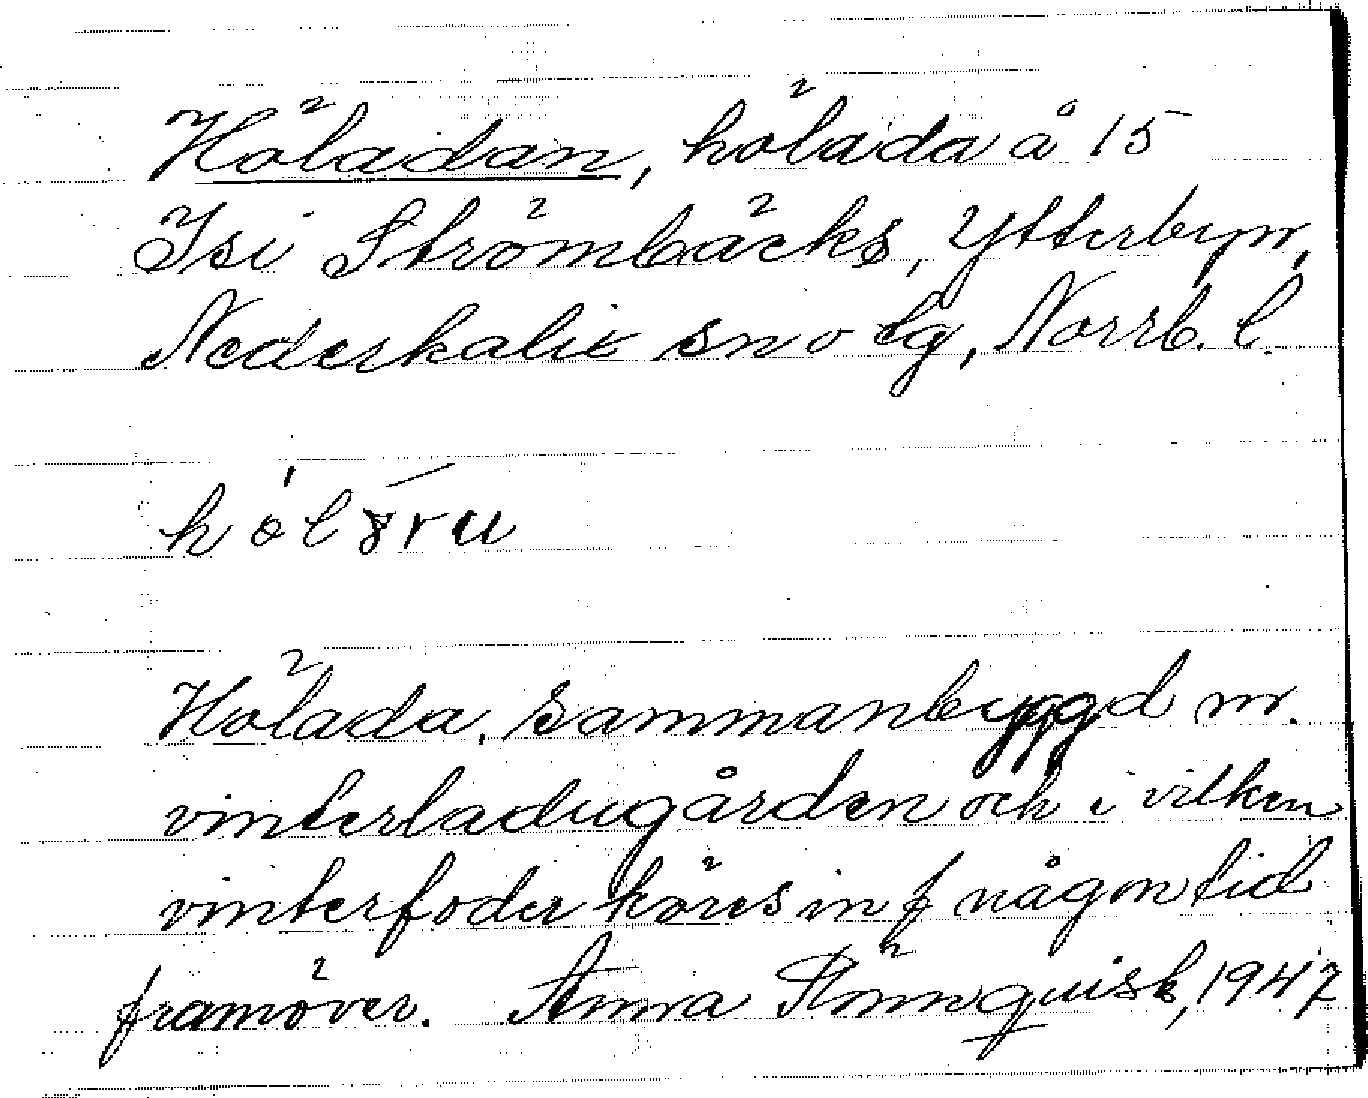 Höladan, hölada å 15
Isi Strömbäcks, Ytterbyn,
Nederkalix sn o tg, Norrb. l.
Hölada, sammanbyggd m.
vinterladugården och i vilken
vinterfoder köres in f någon tid
framöver. Anna Rönnquist, 1947